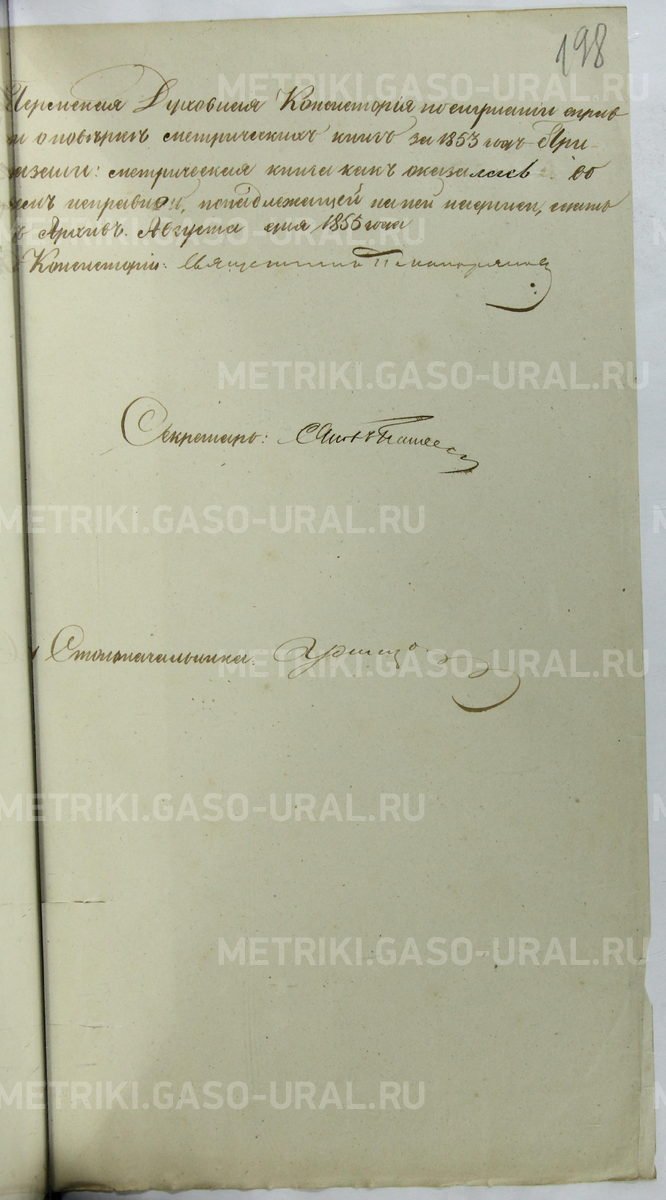 198
Пермская Духовная Консисторія по слушаніи справ
и о повѣркѣ метрическихъ книгъ за 1853 годъ При
казали: метрическая книга какъ оказалась во
всемъ исправной, по надлежащей на ней надписи, сдать
въ Архивъ. Августа дня 1855 года
Консисторіи: Священникъ
Секретарь:
Столоначальника
METRIKI.GASO-URAL.RU
METRIKI.GASO-URAL.RU
METRIKI.GASO-URAL.RU
METRIKI.GASO-URAL.RU
METRIKI.GASO-URAL.RU
METRIKI.GASO-URAL.RU
METRIKI.GASO-URAL.RU
METRIKI.GASO-URAL.RU